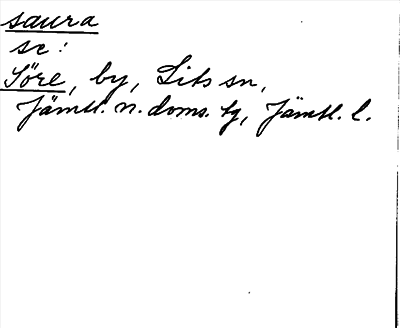 saura
se:
Söre, by, Lits sn,
Jämtl. n. doms. tg, Jämtl. l.